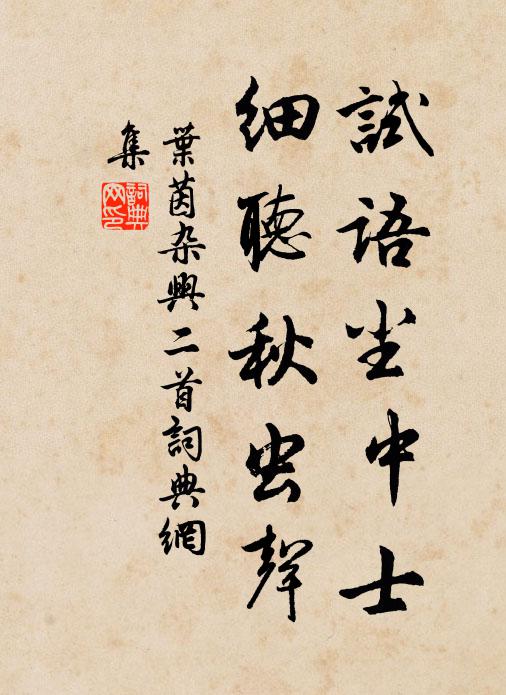 試語尘中士
細聽秋虫聲
葉茵杂興二首詞典網
集
詞典
网印